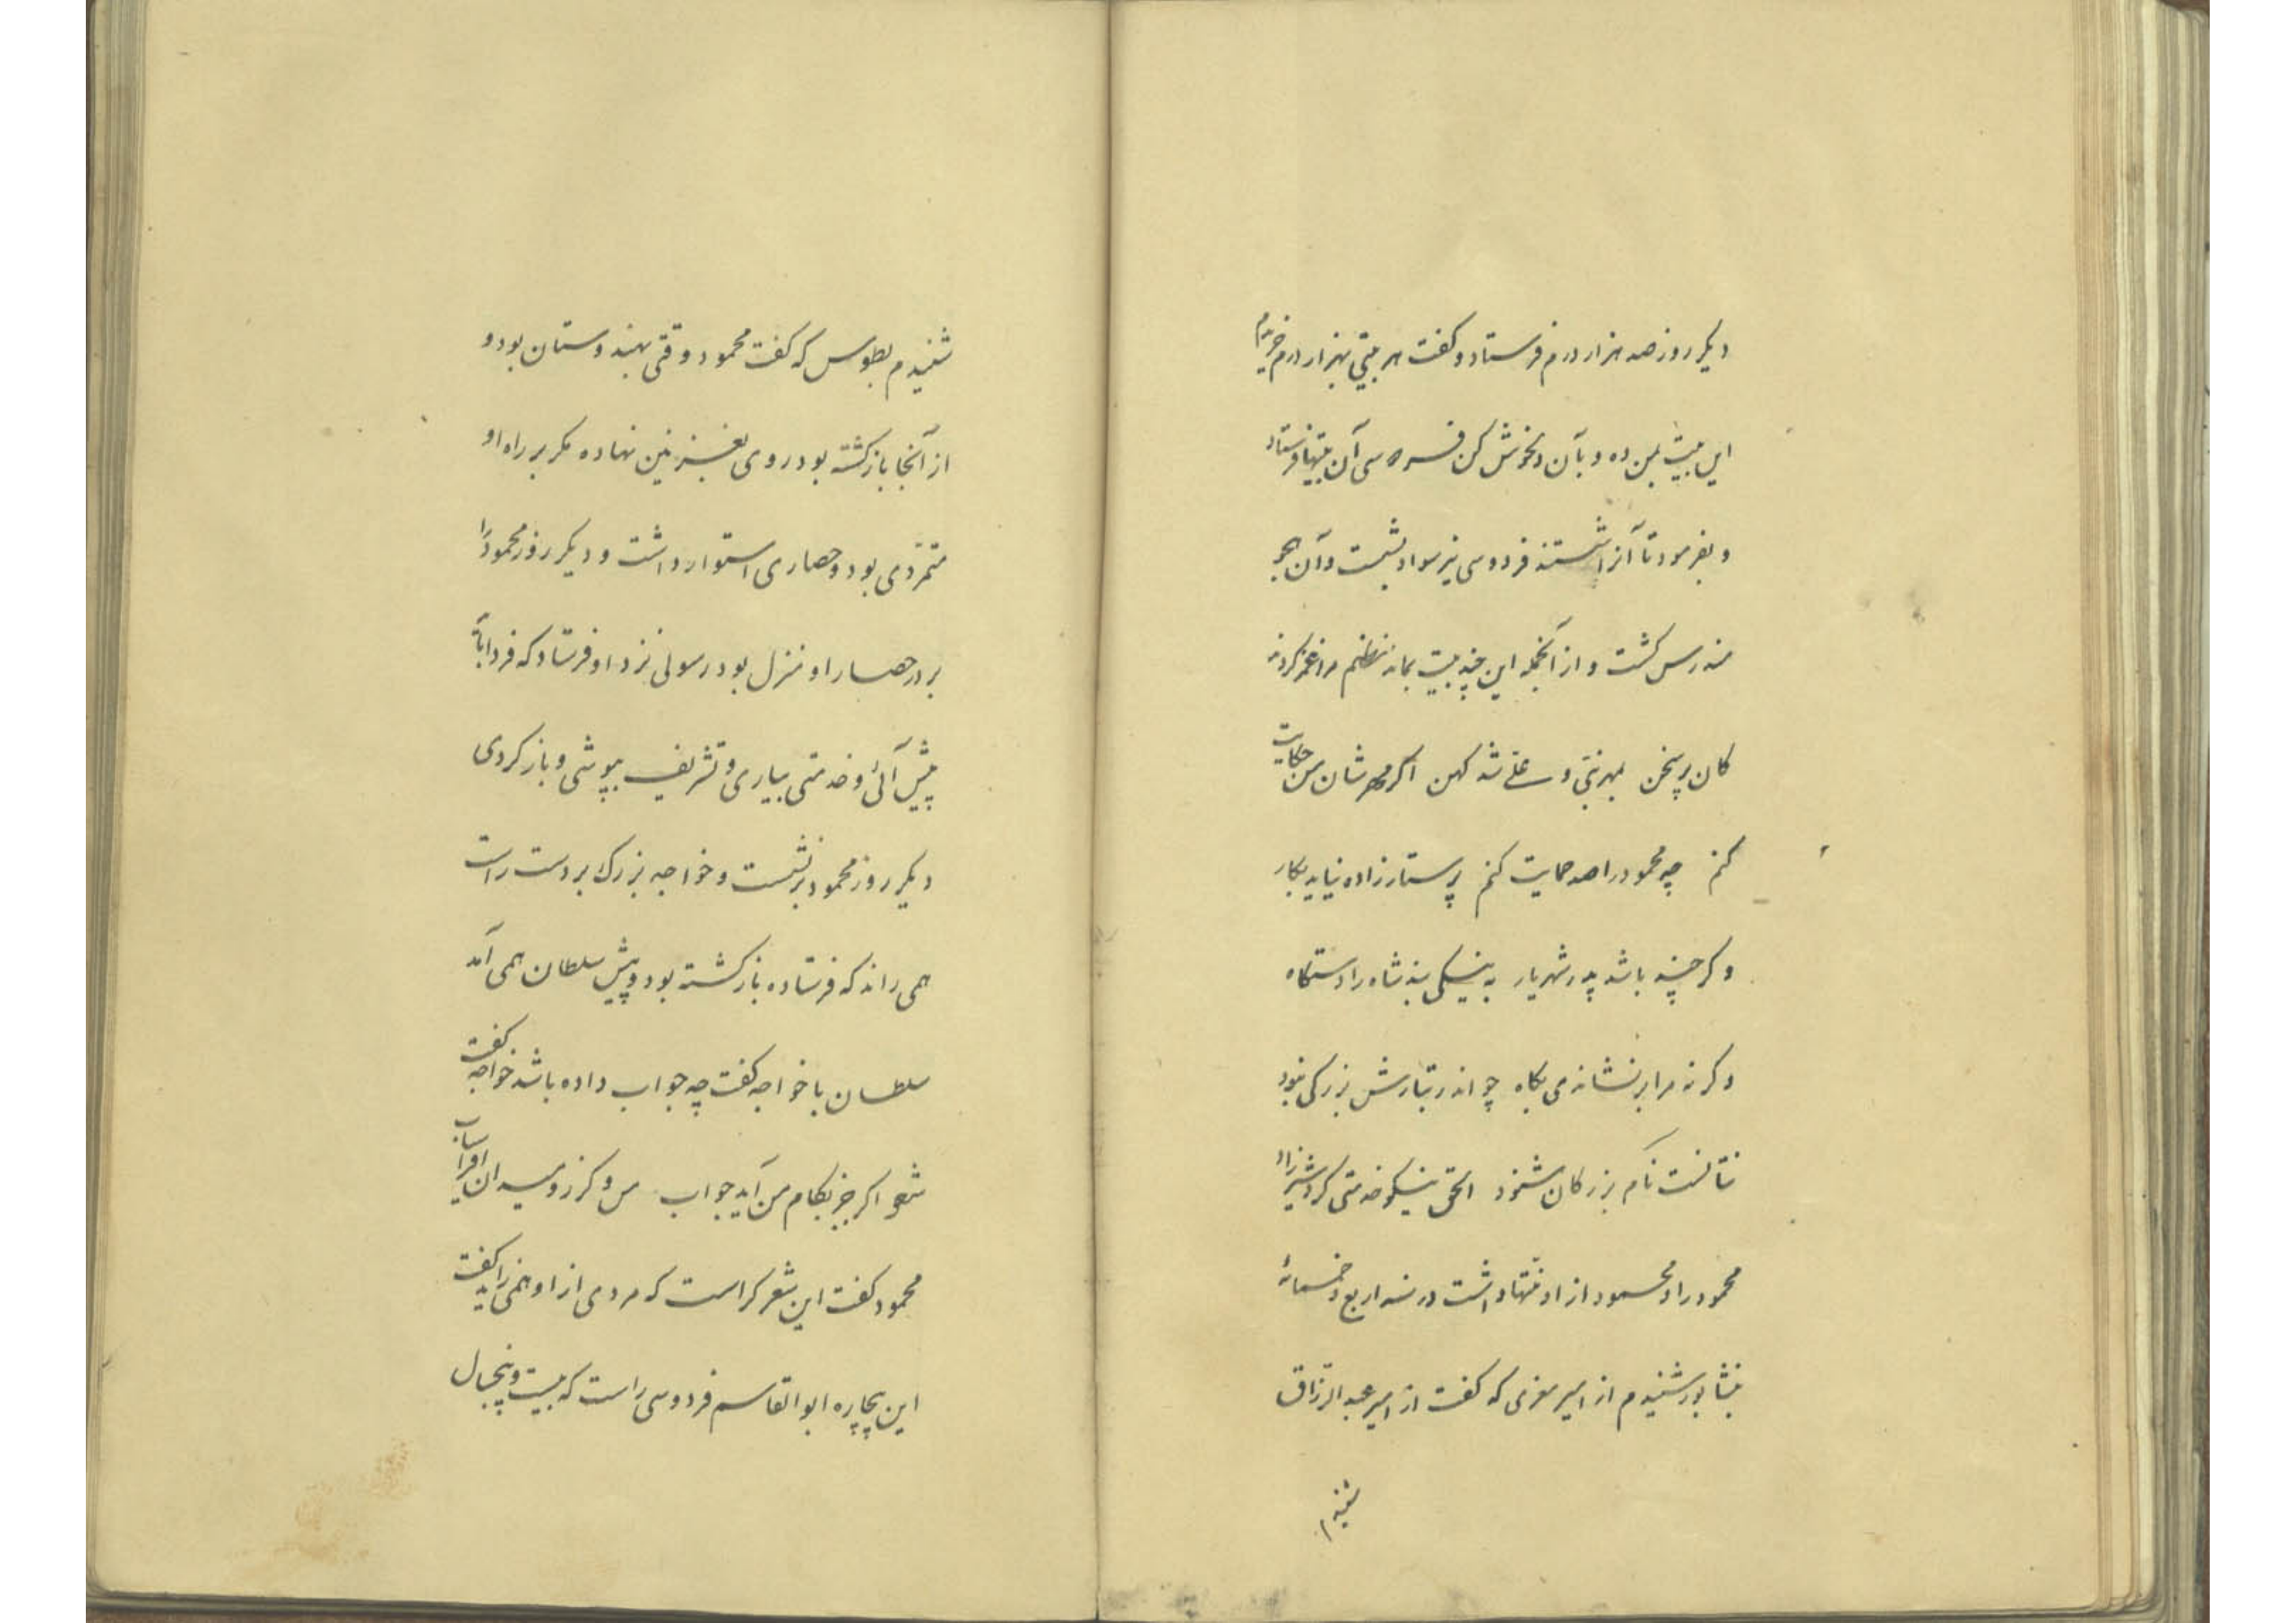 دیکر روز صد هزار درم فرستاد و کفت هر بیتی بهزار درم خریدم
این بیت بمن ده و بآن دلخوش کن فردوسی آن بیتها فرستاد
و بفرمود تا آنرا شستند فردوسی نیز سواد بشست و آن هجو
مندرس کشت و از آنجمله این چند بیت بماند نظم مرا غمز کردند
کان پر سخن بمهر نبی و علی شد کهن اکر مهرشان من حکایت
کنم چو محمود را صد حمایت کنم پرستار زاده نیاید بکار
و کر چند باشد پدر شهریار به نیکی بد شاه را دستکاه
و کر نه مرا بر نشاندی بکاه چو اندر تبارش بزرکی نبود
نتانست نام بزرکان شنود الحق نیکو خدمتی کرد شهرزاد
محمود را و محمود از او منتها داشت در سنه اربع و خمسمائة
بنشابور شنیدم از امیر معزی که کفت از امیر عبد الرزاق
شنیدم
شنیدم بطوس که کفت محمود وقتی بهندوستان بود و
از آنجا بازکشته بود روی بغزنین نهاده مکر بر راه او
متمردی بود و حصاری استوار داشت و دیکر روز محمود را
بر در حصار او منزل بود رسولی نزد او فرستاد که فردا باید
پیش آئی و خدمتی بیاری و تشریف بپوشی و باز کردی
دیکر روز محمود بر نشست و خواجه بزرک بر دست راست
همی راند که فرستاده بازکشته بود و پیش سلطان همی آمد
سلطان با خواجه کفت چه جواب داده باشد خواجه کفت
شعر اکر جز بکام من آید جواب من و کرز و میدان افراسیاب
محمود کفت این شعر کراست که مردی از او همی زاید کفت
این بیچاره ابو القاسم فردوسی راست که بیست و پنجسال